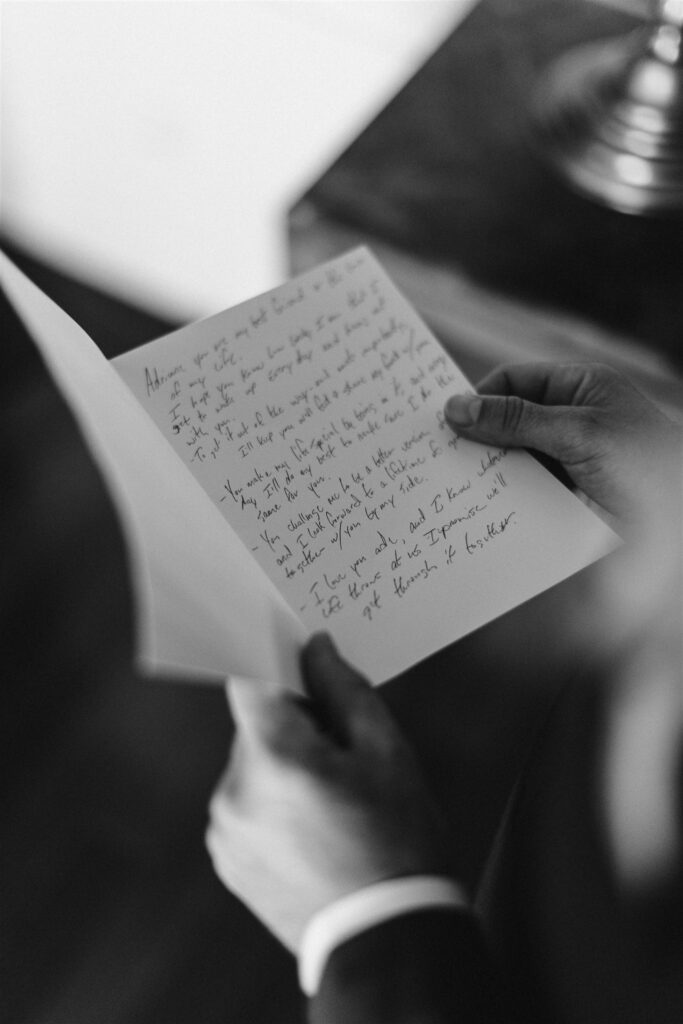 Adrienne you are my best friend & the love
of my life.
I hope you know how lucky I am that I
get to wake up every day and being
with you.
- To get it out of the way.. and most importantly,
I'll keep you well fed & share my food w/you.
- You make my life special by being in it, and every
day I'll do my best to make sure I do the
same for you.
- You challenge me to be a better version
and I look forward to a lifetime
together w/ you by my side.
- I love you ade, and I know whatever
life throws at us I promise we'll
get through it together.